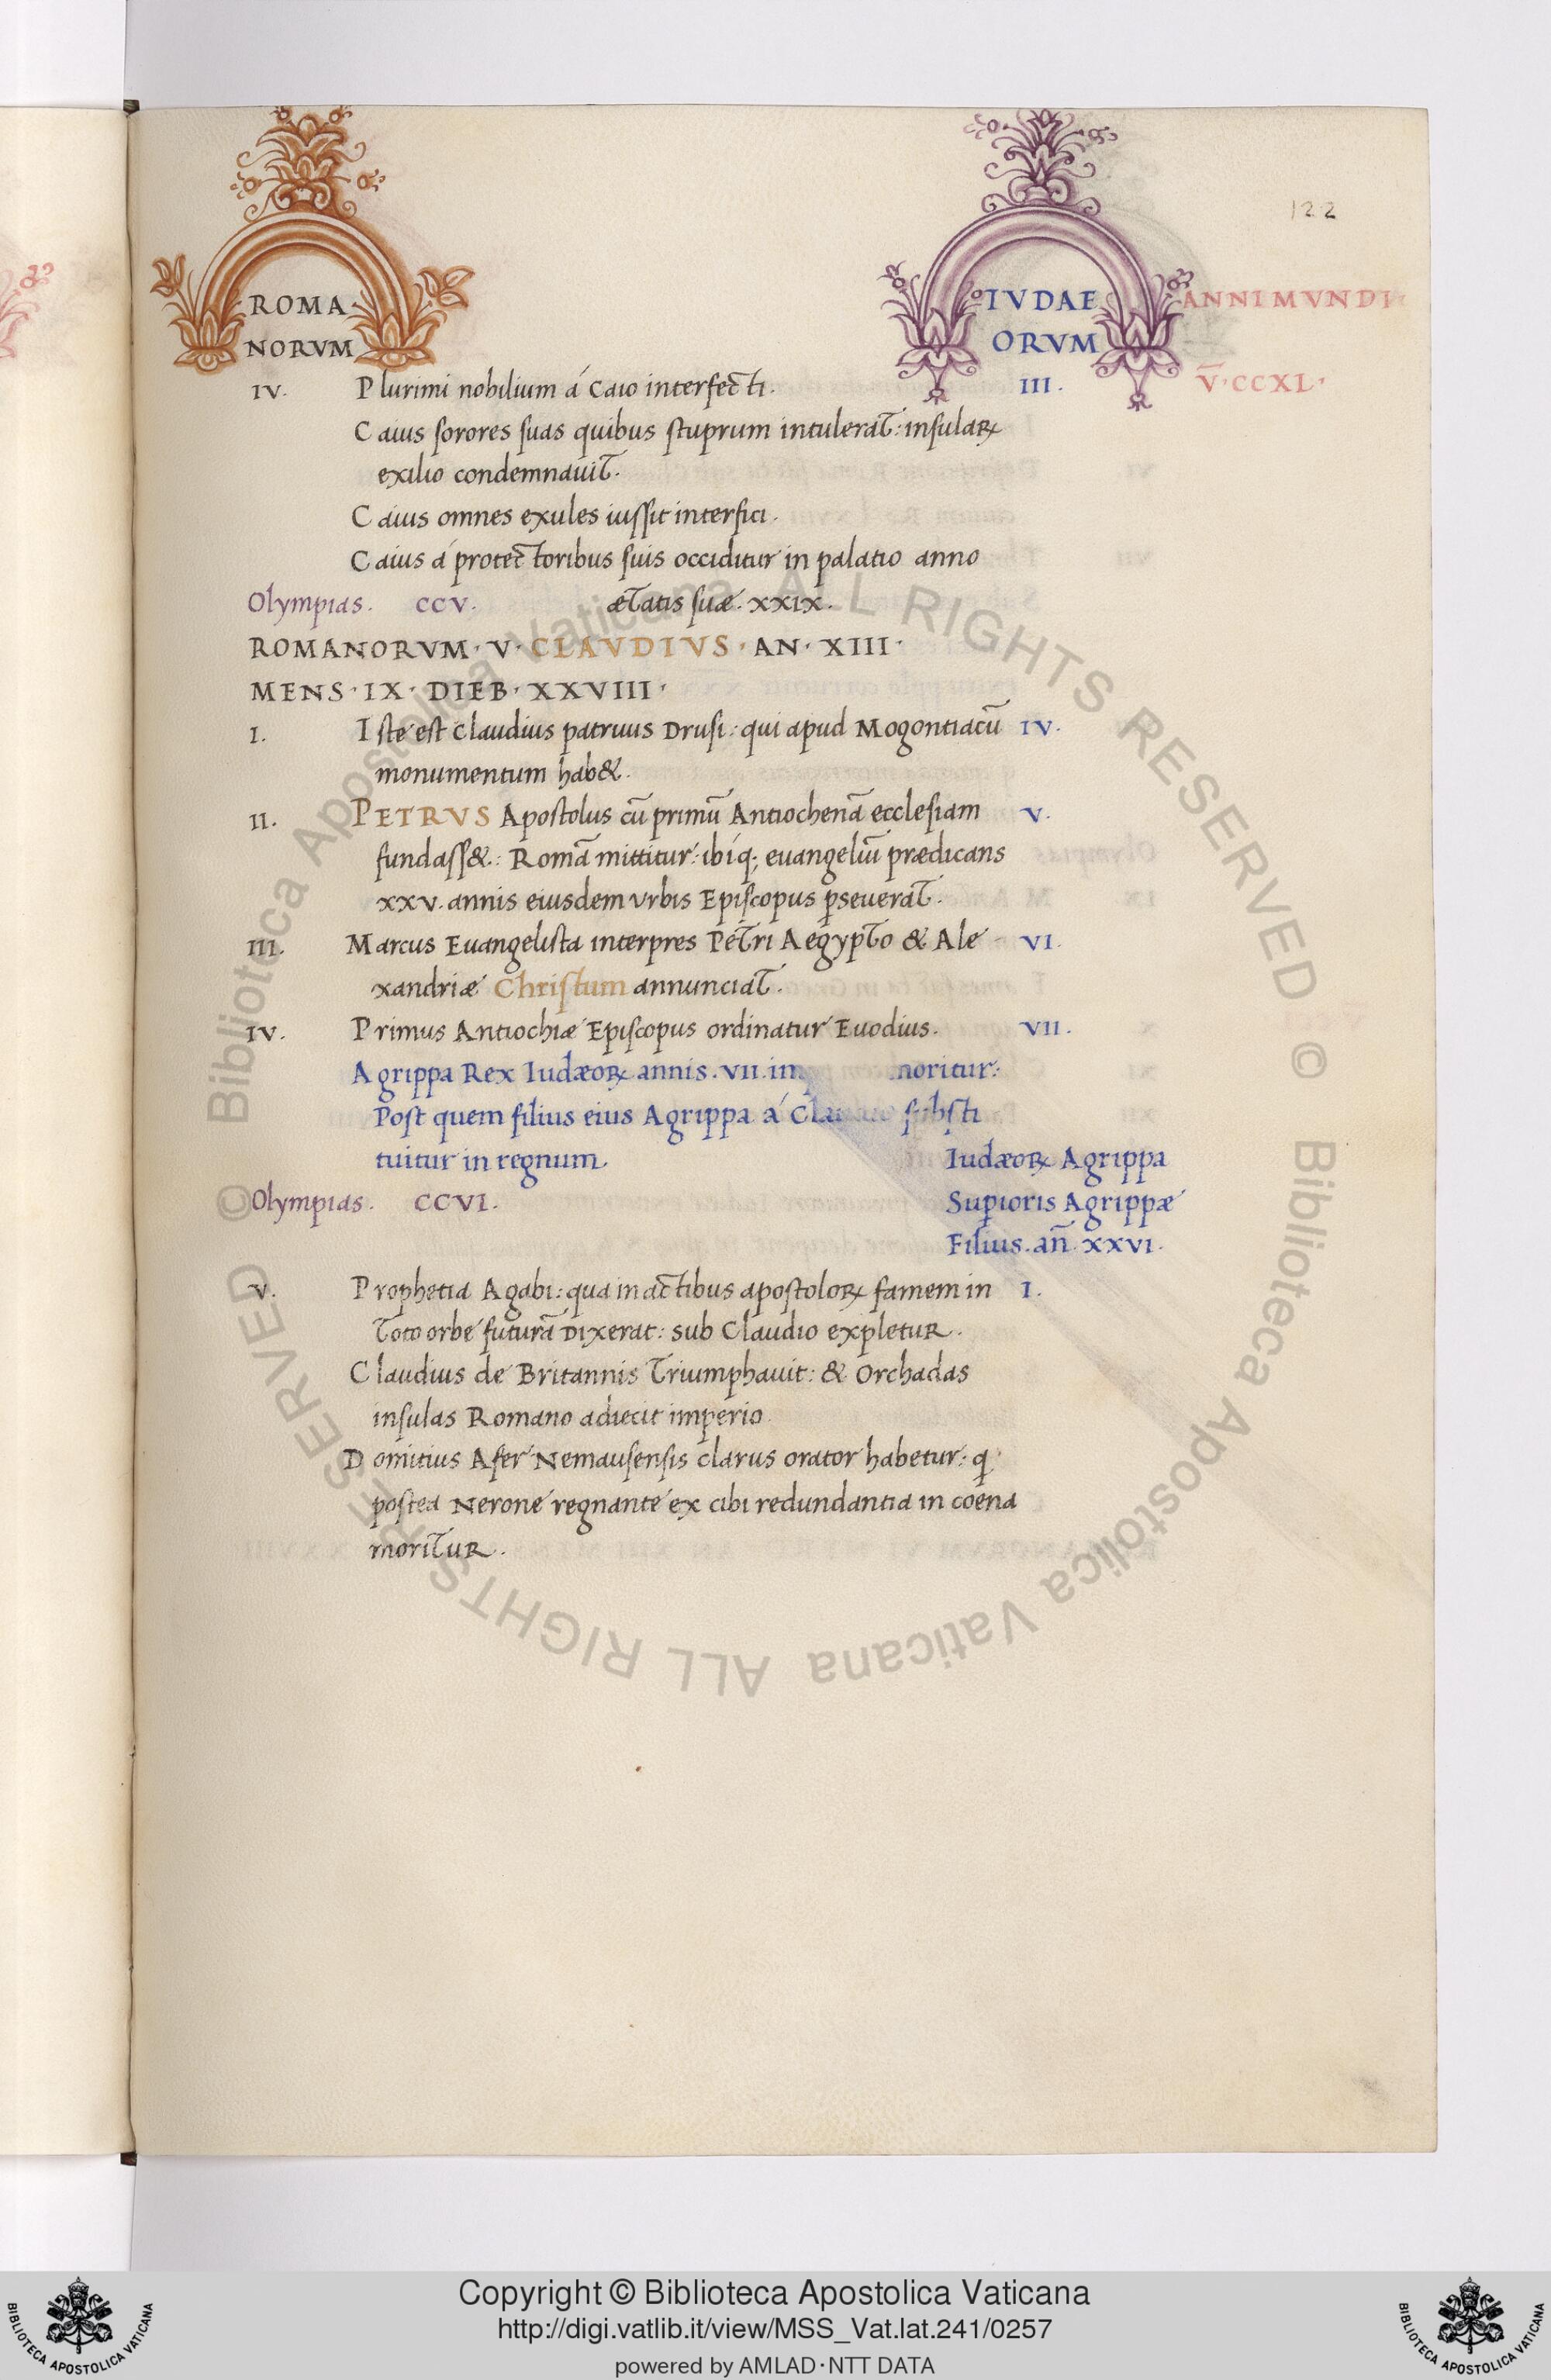 122
ROMA
NORVM
IVDAE
ORVM
ANNI MVNDI
IV. Plurimi nobilium á Caio interfecti. III. V̅·CCXL·
Caius sorores suas quibus stuprum intulerat: insulaꝝ
exilio condemnauit.
Caius omnes exules iussit interfici.
Caius á protectoribus suis occiditur in palatio anno
Olympias. CCV. ætatis suæ. XXIX.
ROMANORVM· V· CLAVDIVS· AN· XIII·
MENS· IX· DIEB· XXVIII·
I. Iste est Claudius patruus Drusi: qui apud Mogontiacū IV.
monumentum hab&.
II. PETRVS Apostolus cū primū Antiochenā ecclesiam V.
fundass&: Romā mittitur: ibíq; euangeliū prædicans
XXV. annis eiusdem vrbis Episcopus ꝑseuerat.
III. Marcus Euangelista interpres Petri Aegypto & Ale VI.
xandriæ Christum annunciat.
IV. Primus Antiochiæ Episcopus ordinatur Euodius. VII.
Agrippa Rex Iudæoꝝ annis. VII. noritur:
Post quem filius eius Agrippa á substi
tuitur in regnum. Iudæoꝝ Agrippa
Olympias. CCVI. Suꝑioris Agrippæ
Filius. an̄. XXVI.
V. Prophetia Agabi: qua in actibus apostoloꝝ famem in I.
Toto orbe futurā dixerat: sub Claudio expletur.
Claudius de Britannis Triumphauit: & Orchadas
insulas Romano adiecit imperio.
Domitius Afer Nemausensis clarus orator habetur: q
postea Nerone regnante ex cibi redundantia in coena
moritur.
© Biblioteca Apostolica Vaticana ALL RIGHTS RESERVED © Biblioteca Apostolica Vaticana ALL RIGHTS RESERVED
Copyright © Biblioteca Apostolica Vaticana
http://digi.vatlib.it/view/MSS_Vat.lat.241/0257
powered by AMLAD·NTT DATA
BIBLIOTECA APOSTOLICA VATICANA
BIBLIOTECA APOSTOLICA VATICANA